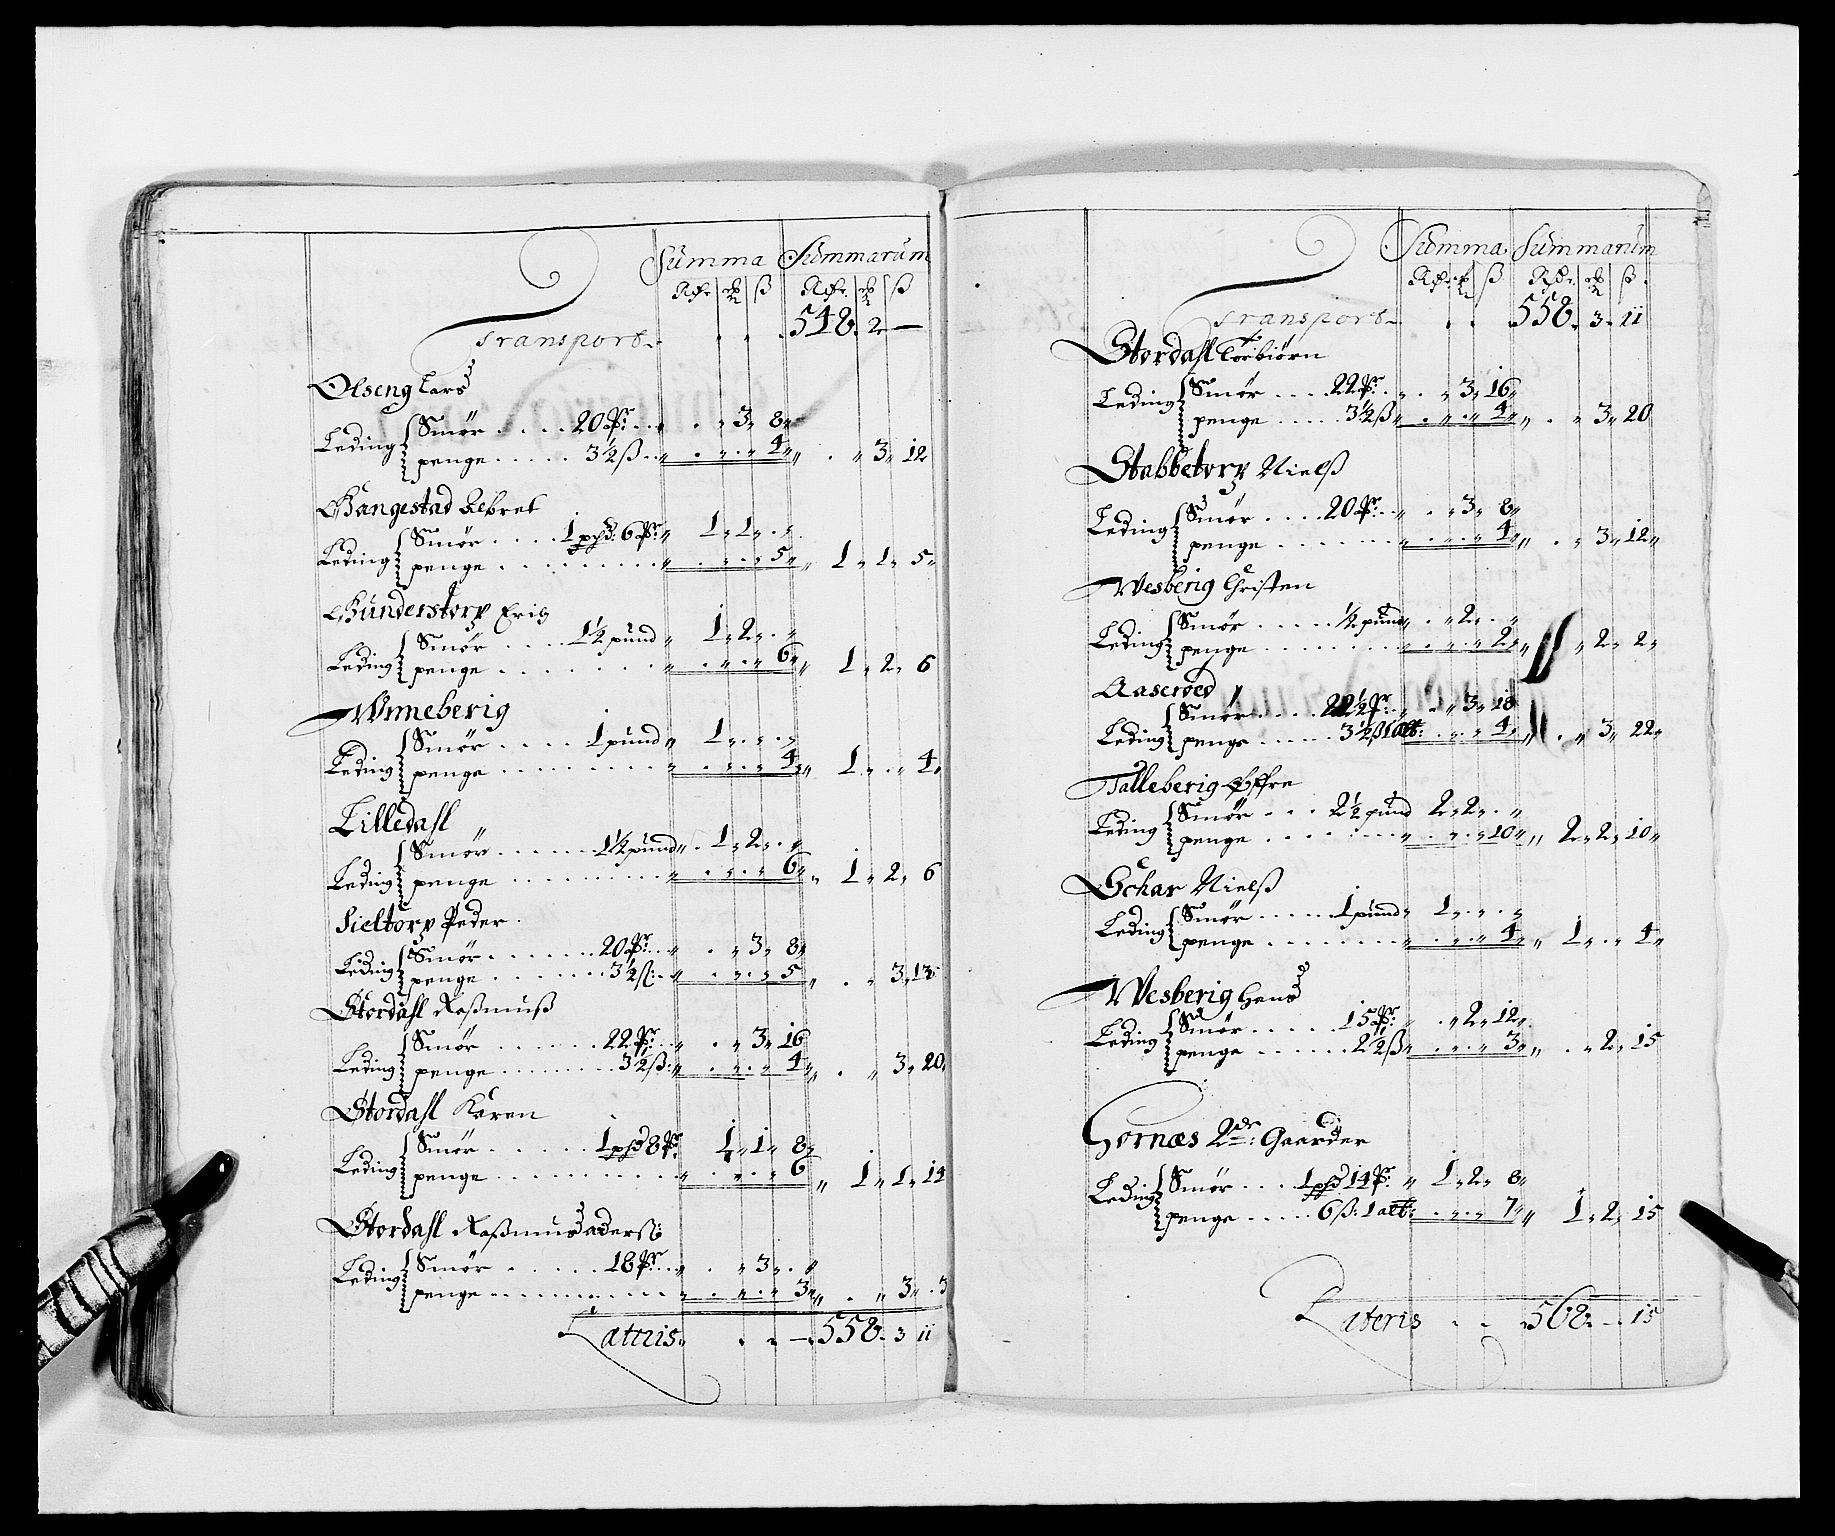 Summa Summarum
Rdr. mk ß Rdr. mk ß
Transport 548. 2 —
Olseng Lars
Leding Smør .... 20 Pr: 3. 8
penge ..... 3½ß 4 3. 12
Bangestad Aebret
Leding Smør .... 1 pfd: 6 Pr 1. 1
penge 5 1. 1. 5
Gunderstorp Erig
Leding Smør .... 1½ pund 1. 2
penge 6 1. 2. 6
Wnneberig
Leding Smør .... 1 pund 1
penge 4 1. . 4
Lilledahl
Leding Smør ...... 1½ pund 1. 2
penge 6 1. 2. 6
Sieltorp Peder
Leding Smør ...... 20 Pr: 3. 8
penge ...... 3½ß: 5 3. 13
Stordahl Rasmuß
Leding Smør ...... 22 Pr: 3. 16
penge ...... 3½ß: 4 3. 20
Stordahl Karen
Leding Smør ..... 1 pfd 8 Pr: 1. 1. 8
penge 6 1. 1. 14
Stordahl Rasmus
Leding Smør ..... 18 Pr. 3
penge 3 3. 3
Lateris 558. 3 11
Summa Summarum
Rdr mk ß Rdr. mk ß
Transport 558. 3. 11
Stordahl Torbiørn
Leding Smør .... 22 Pr. 3. 16
penge ..... 3½ß 4 3. 20
Stabbetorp Nielß
Leding Smør .... 20 Pr: 3. 8
penge 4 3. 12
Wesberig Christen
Leding Smør ..... ½ pund 2
penge 2 2. 2
Aaseroed
Leding Smør ..... 22½ Pr: 3. 18
penge ..... 3½ß 1 alb: 4 3. 22
Talleberig Offre
Leding Smør ... 2½ pund 2. 2
penge 10 2. 2. 10
Schar Nielß
Leding Smør ..... 1 pund 1
penge 4 1. . 4
Wesberig Hans
Leding Smør ..... 15 Pr: 2. 12
penge ..... 2½ß 3 2. 15
Hornæs 2de: Gaarder
Leding Smør ... 1 pfd 14 Pr: 1. 2. 8
penge ..... 6ß: 1 alb: 7 1. 2. 15
Lateris 568. — 15